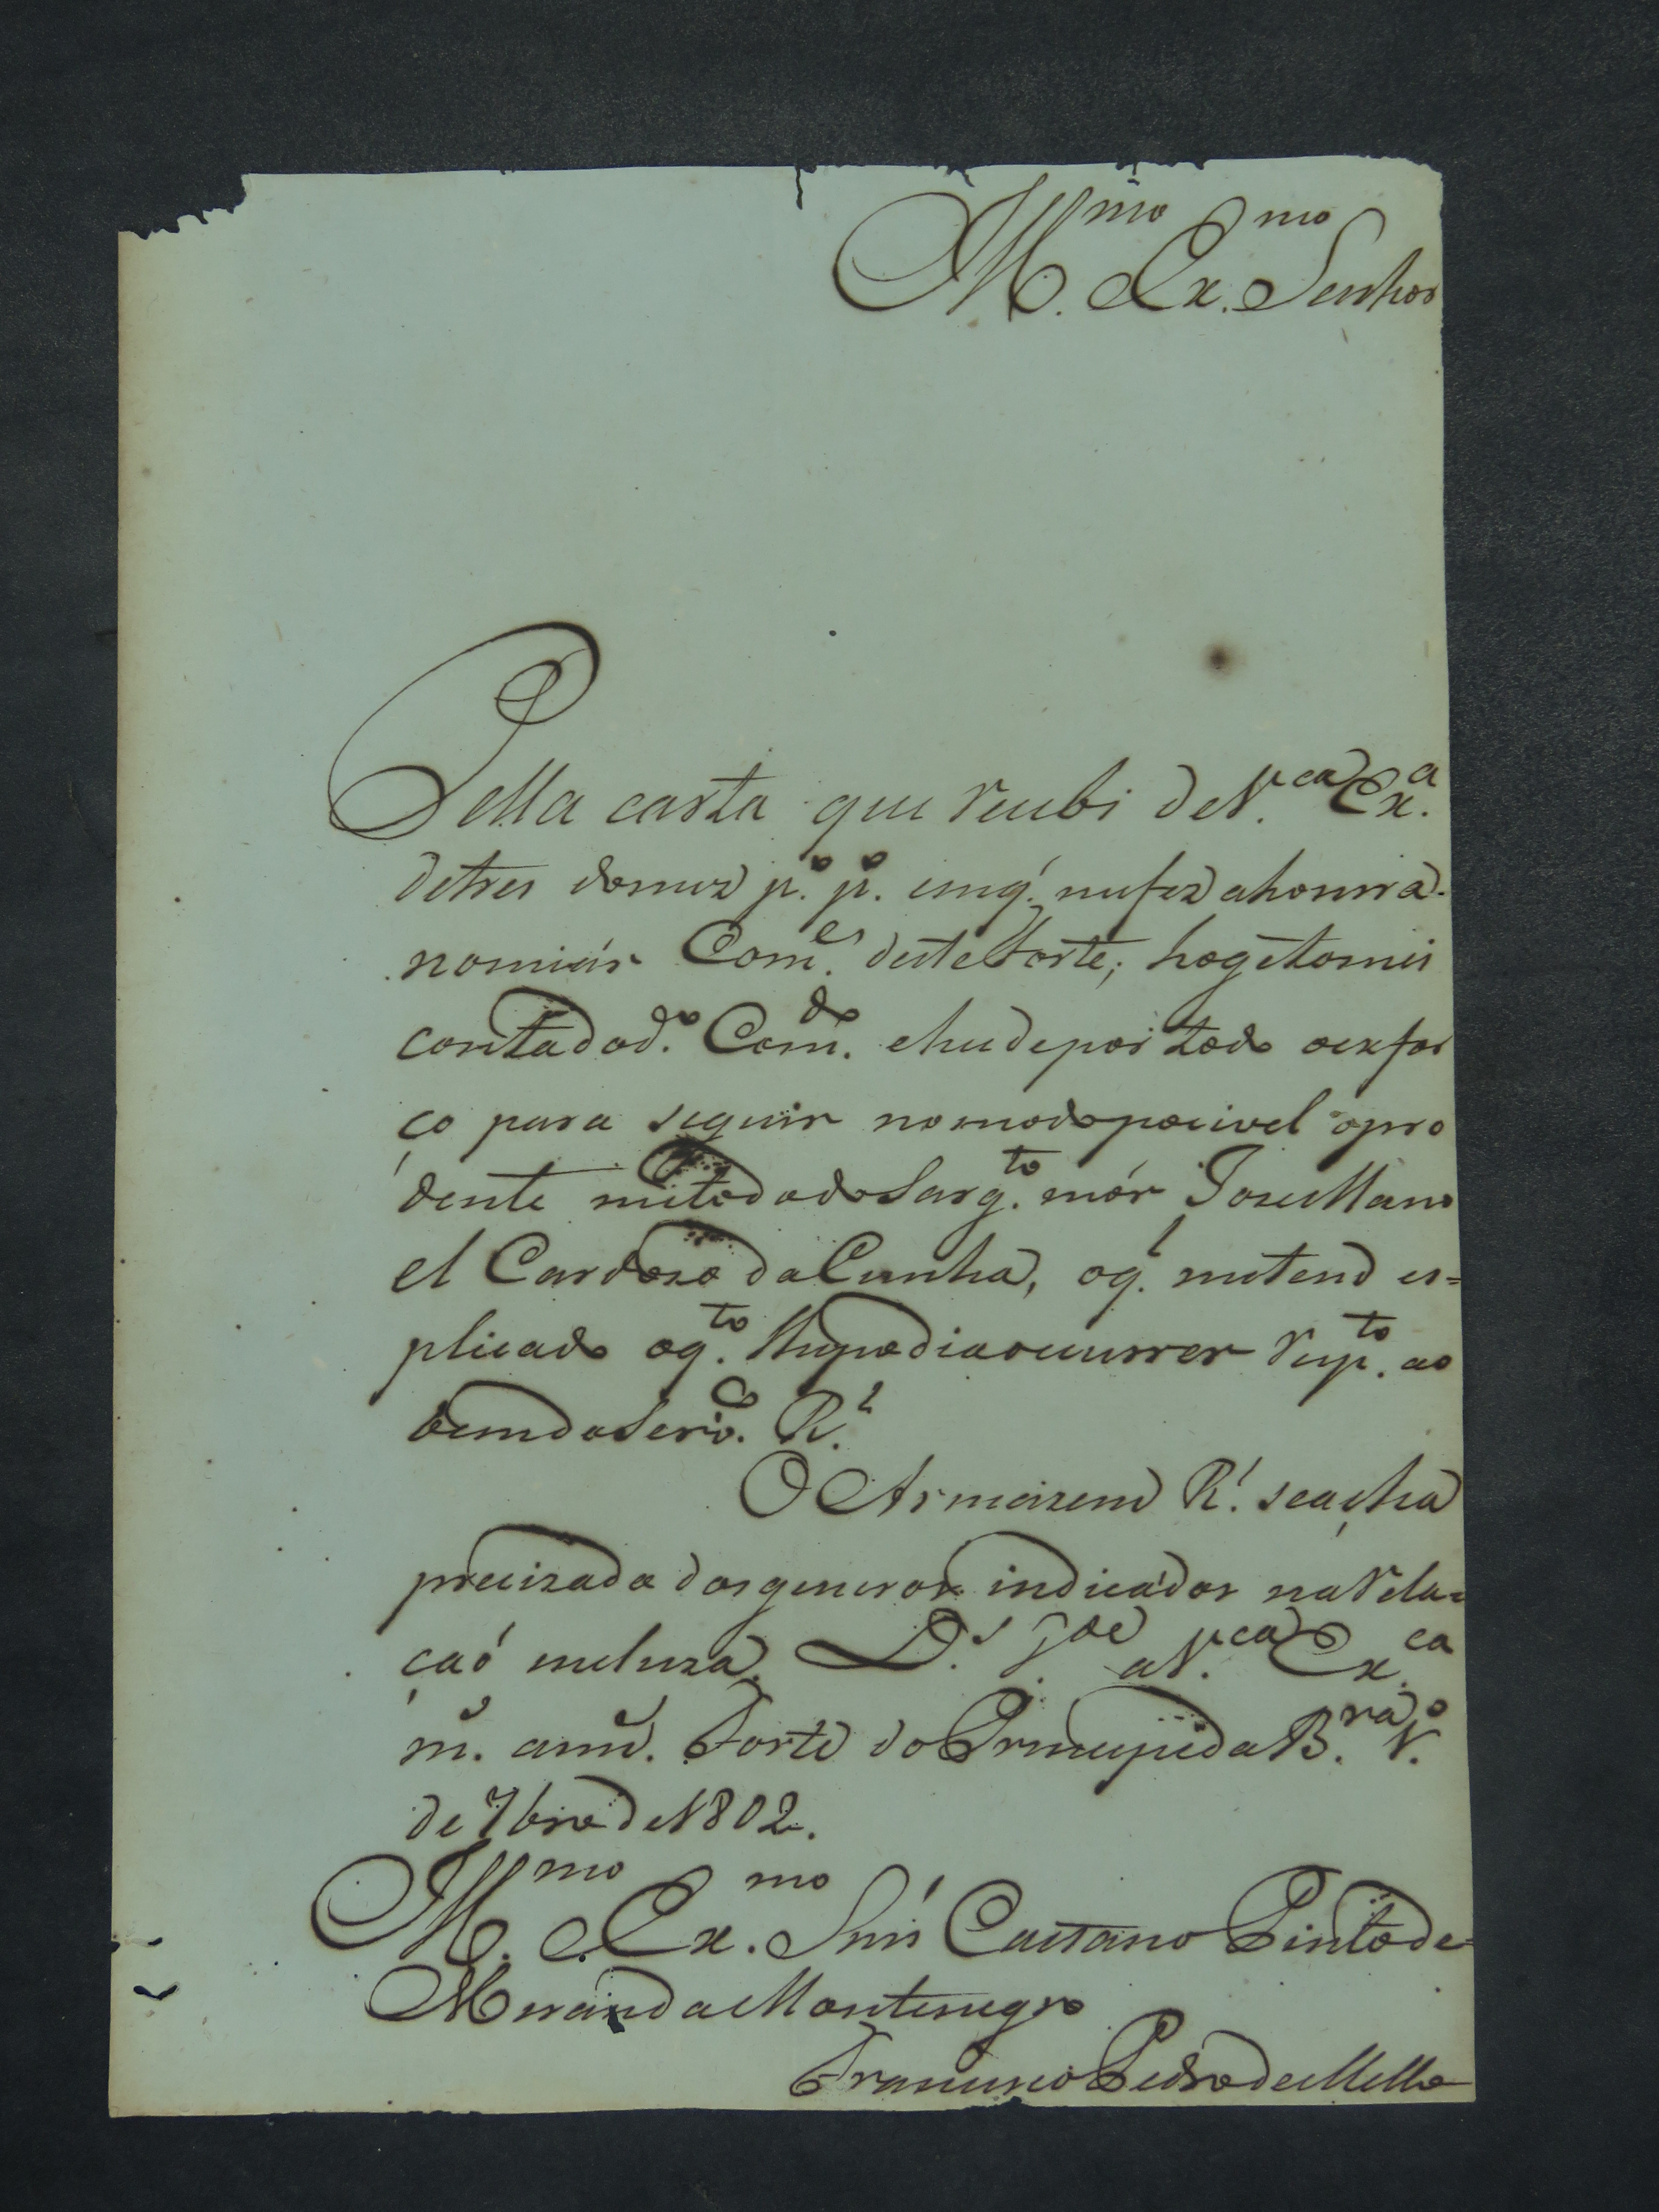 Ill.mo Ex.mo Senhor
Pella carta que recebi de V.ca Ex.a
de tres do mez p.o p.o em q.' me fez a honrra
nomiár Com.es deste Forte, hoge tomei
conta do d.o Com.do e hei de por todo o exfor
ço para seguir no modo pocivel o pro
dente mitodo do Sarg.to mór Joze Mano
el Cardozo da Cunha, o q.' me tem es=
plicado o q.to lhe podia ocurrer resp.to ao
bem do Serv.co R.l
O Armaizem R.l se açha
precizado dos generos indicádos na rela=
çaó incluza. D.s g.de a V.ca Ex.ca
m.s ann.s Forte do Principe da B.ra V.o
de 7bro de 1802.
Ill.mo Ex.mo Snr' Caetano Pinto de
Miranda Montenegro
Francisco Pedro de Mello